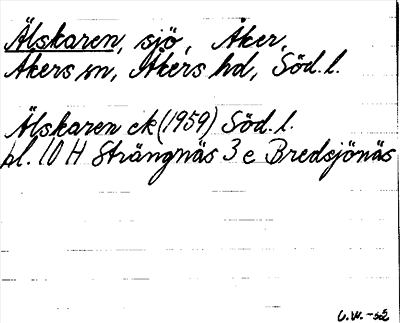 Älskaren, sjö, Åker,
Åkers sn, Åkers hd, Söd. l.
Älskaren ek (1959) Söd. l.
bl. 10 H Strängnäs 3 e Bredsjönäs